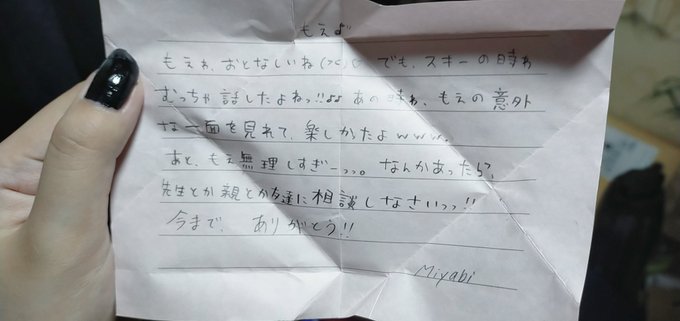 もえよ゛
もえわ、おとなしいね(><)♡ でも、スキーの時わ
むっちゃ話したよねっ!!♪♪ あの時わ、もえの意外
な一面を見れて、楽しかたよwww。
あと、もえ無理しすぎーっっ。なんかあったら?、
先生とか親とか友達に相談しなさいっっ!!
今まで、ありがとう!!
Miyabi